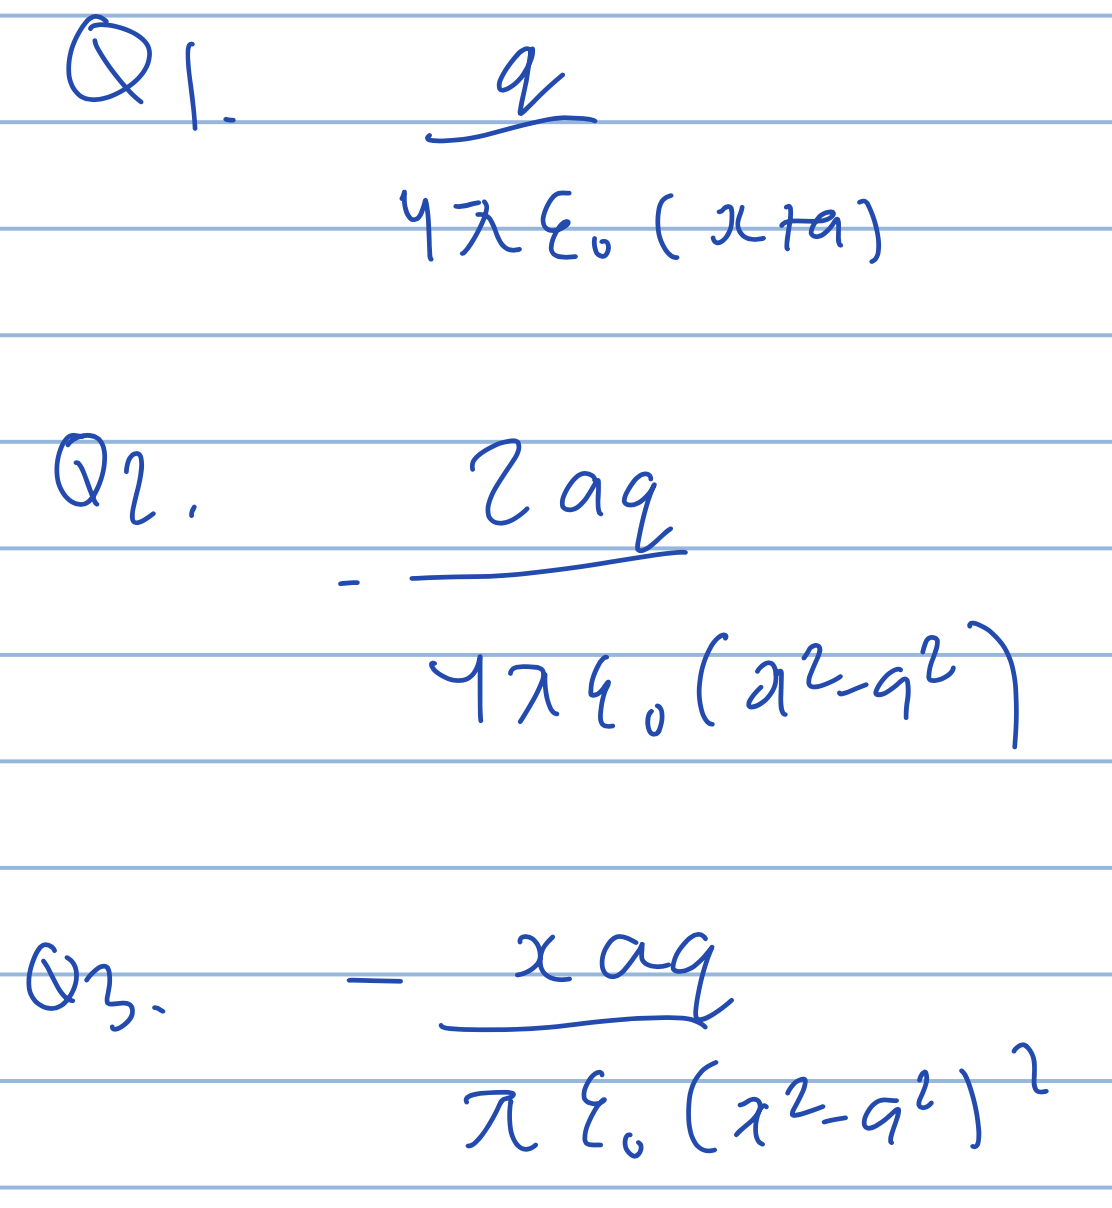 Q1. q
4πε₀(x+a)
Q2. - 2aq
4πε₀(x²-a²)
Q3. - xaq
πε₀(x²-a²)²